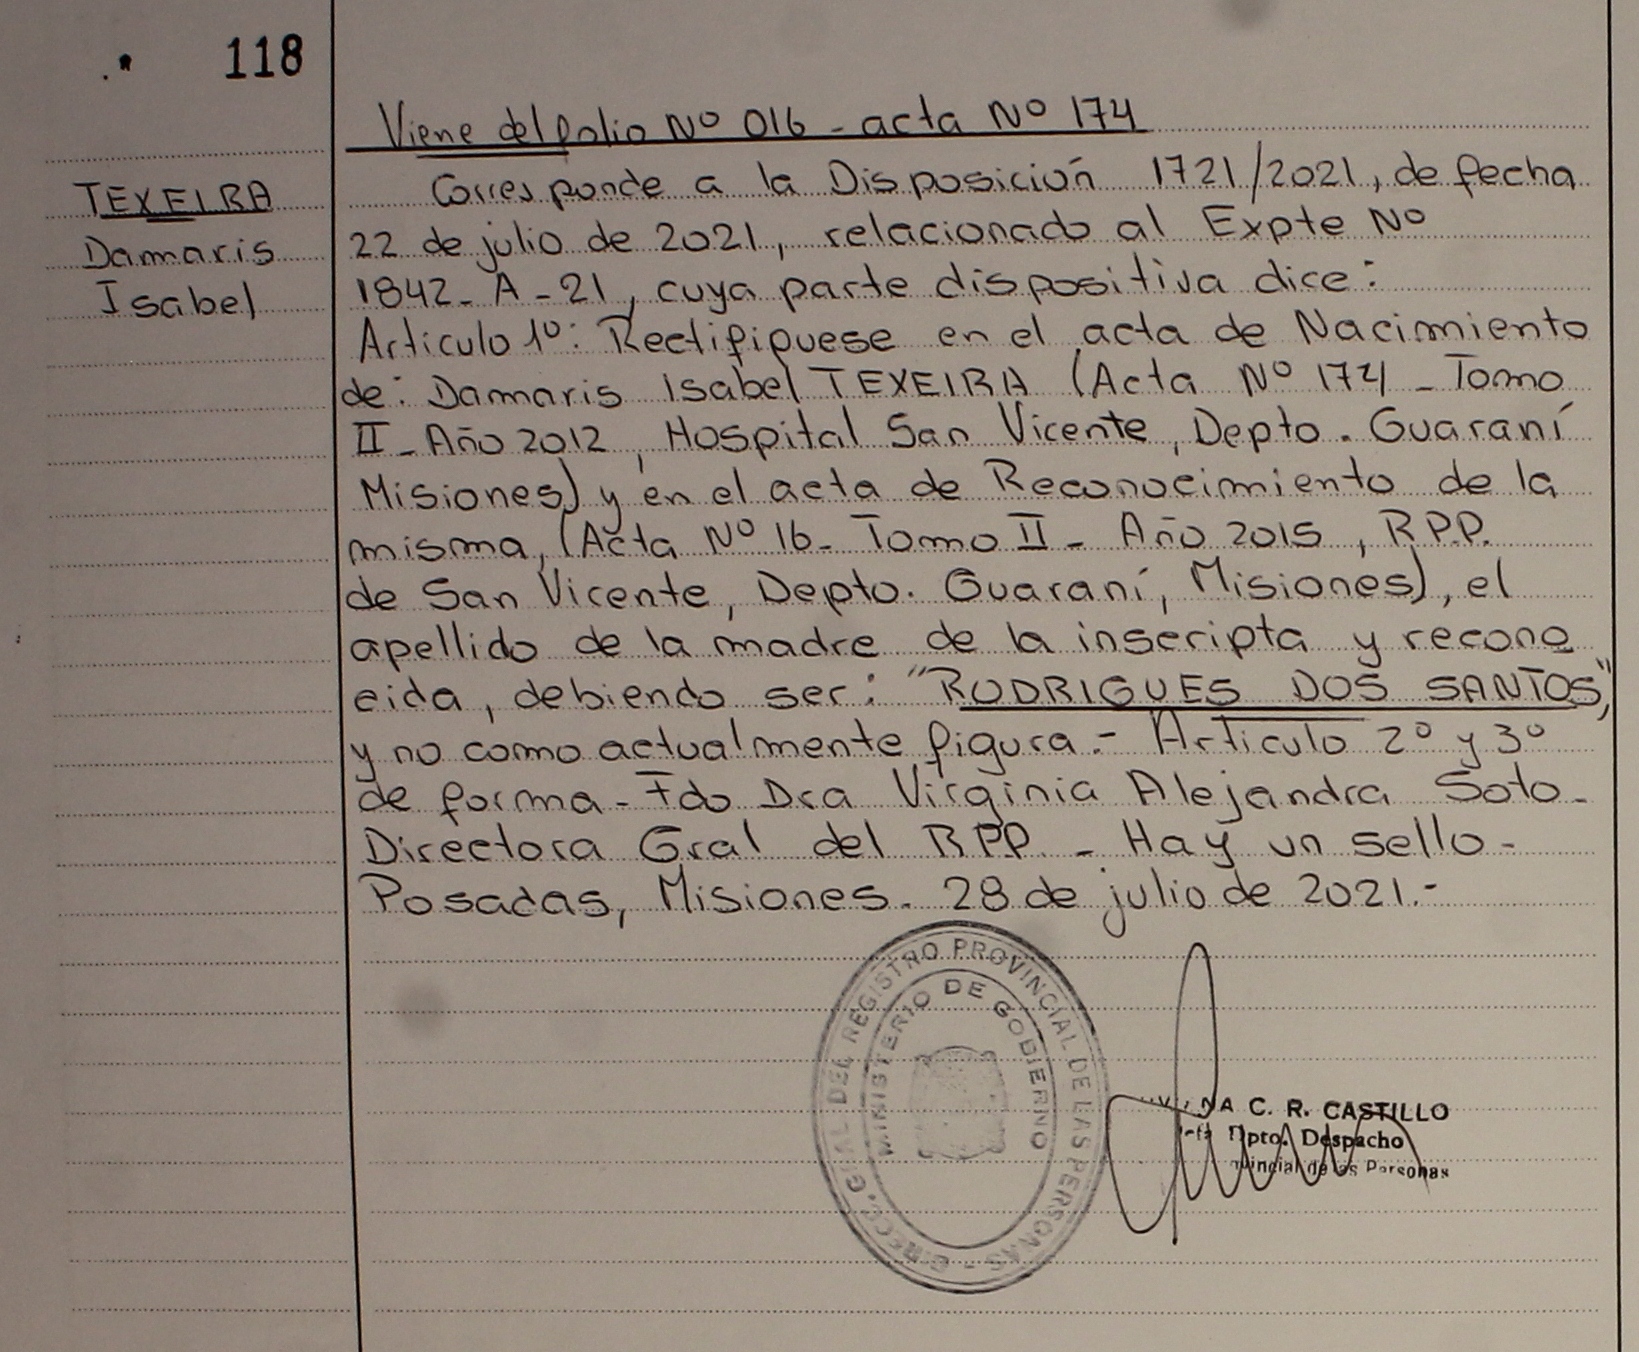 118
Viene del folio Nº 016 - acta Nº 174
TEXEIRA
Damaris
Isabel
Corresponde a la Disposición 1721/2021, de fecha
22 de julio de 2021, relacionado al Expte Nº
1842- A - 21, cuya parte dispositiva dice:
Articulo 1º: Rectifiquese en el acta de Nacimiento
de: Damaris Isabel TEXEIRA (Acta Nº 174 - Tomo
II - Año 2012, Hospital San Vicente, Depto. Guaraní
Misiones) y en el acta de Reconocimiento de la
misma, (Acta Nº 16- Tomo II - Año 2015, R.P.P.
de San Vicente, Depto. Guaraní, Misiones), el
apellido de la madre de la inscripta y recono
cida, debiendo ser: "RODRIGUES DOS SANTOS",
y no como actualmente figura.- Articulo 2º y 3º
de forma - Fdo Dra Virginia Alejandra Soto-
Directora Gral del RPP. - Hay un sello-
Posadas, Misiones. 28 de julio de 2021.-
GRAL DEL REGISTRO PROVINCIAL DE LAS PERSONAS
MINISTERIO DE GOBIERNO
C. R. CASTILLO
Dpto. Despacho
de las Personas